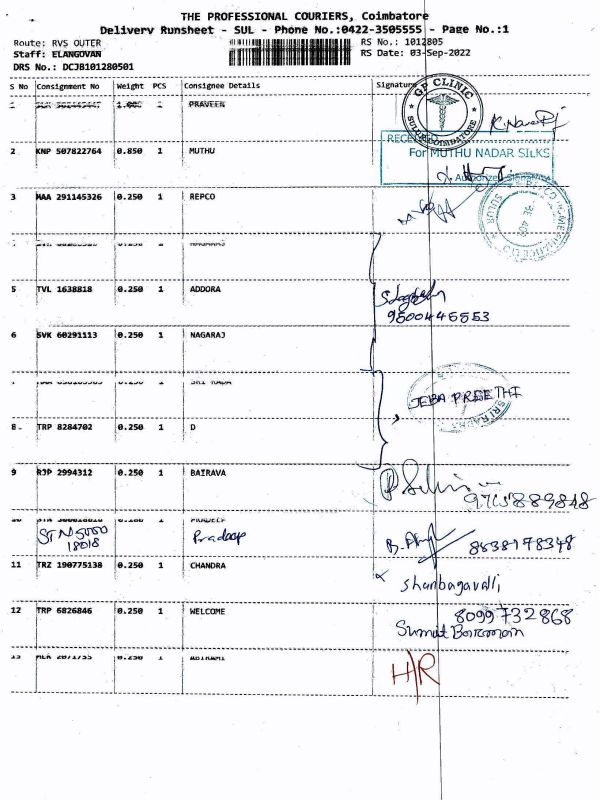 THE PROFESSIONAL COURIERS, Coimbatore
Delivery Runsheet - SUL - Phone No.:0422-3505555 - Page No.:1
Route: RVS OUTER RS No.: 1012805
Staff: ELANGOVAN RS Date: 03-Sep-2022
DRS No.: DCJB101280501
S No Consignment No Weight PCS Consignee Details Signature
1.000 1 PRAVEEN
GP CLINIC
SULUR COIMBATORE
RECEIVED
For MUTHU NADAR SILKS
2 KNP 507822764 0.850 1 MUTHU
3 MAA 291145326 0.250 1 REPCO
SULUR
5 TVL 1638818 0.250 1 ADDORA
95004 45553
6 SVK 60291113 0.250 1 NAGARAJ
SRI RADA
JEBA PREETHI
8 TRP 8284702 0.250 1 D
9 RJP 2994312 0.250 1 BAIRAVA
10 PRADEEP
18018 Pradeep
8838178348
11 TRZ 190775138 0.250 1 CHANDRA
Shanbagavalli
12 TRP 6826846 0.250 1 WELCOME
8099732868
13 0.250 1 ABIRAMI
H/R